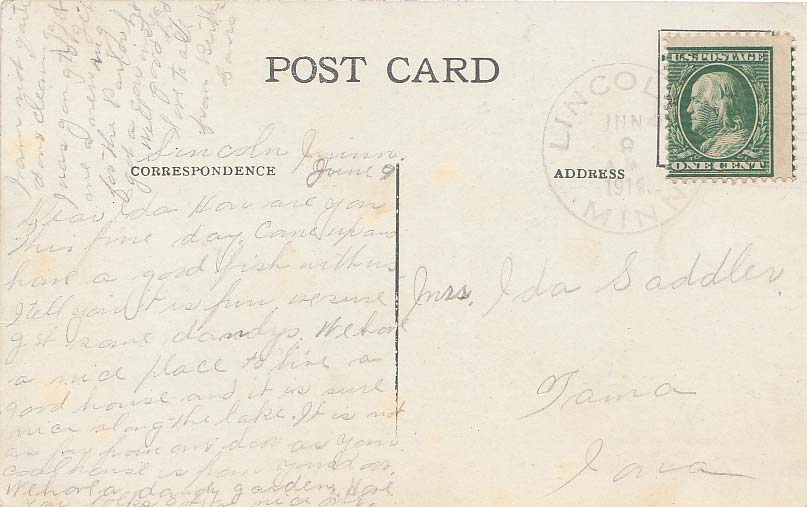 POST CARD
CORRESPONDENCE
ADDRESS
U.S. POSTAGE
ONE CENT
LINCOLN
JUN
9
MINN
Lincoln Minn.
June 9
Dear Ida How are you
this fine day. Come up and
have a good fish with us
I tell you it is fun, we sure
get some dandys. We have
a nice place to live a
good house and it is sure
nice along the lake. It is not
as far from our door as your
coalhouse is from your door.
We have a dandy garden. Have
you folks got a nice one.
I am not quite
done cleaning yet
I was going to get
one a new rug
for the Parlor but
got a cow instead
Will good by
Love to all
from Bertha
Mrs. Ida Saddler
Tama
Iowa